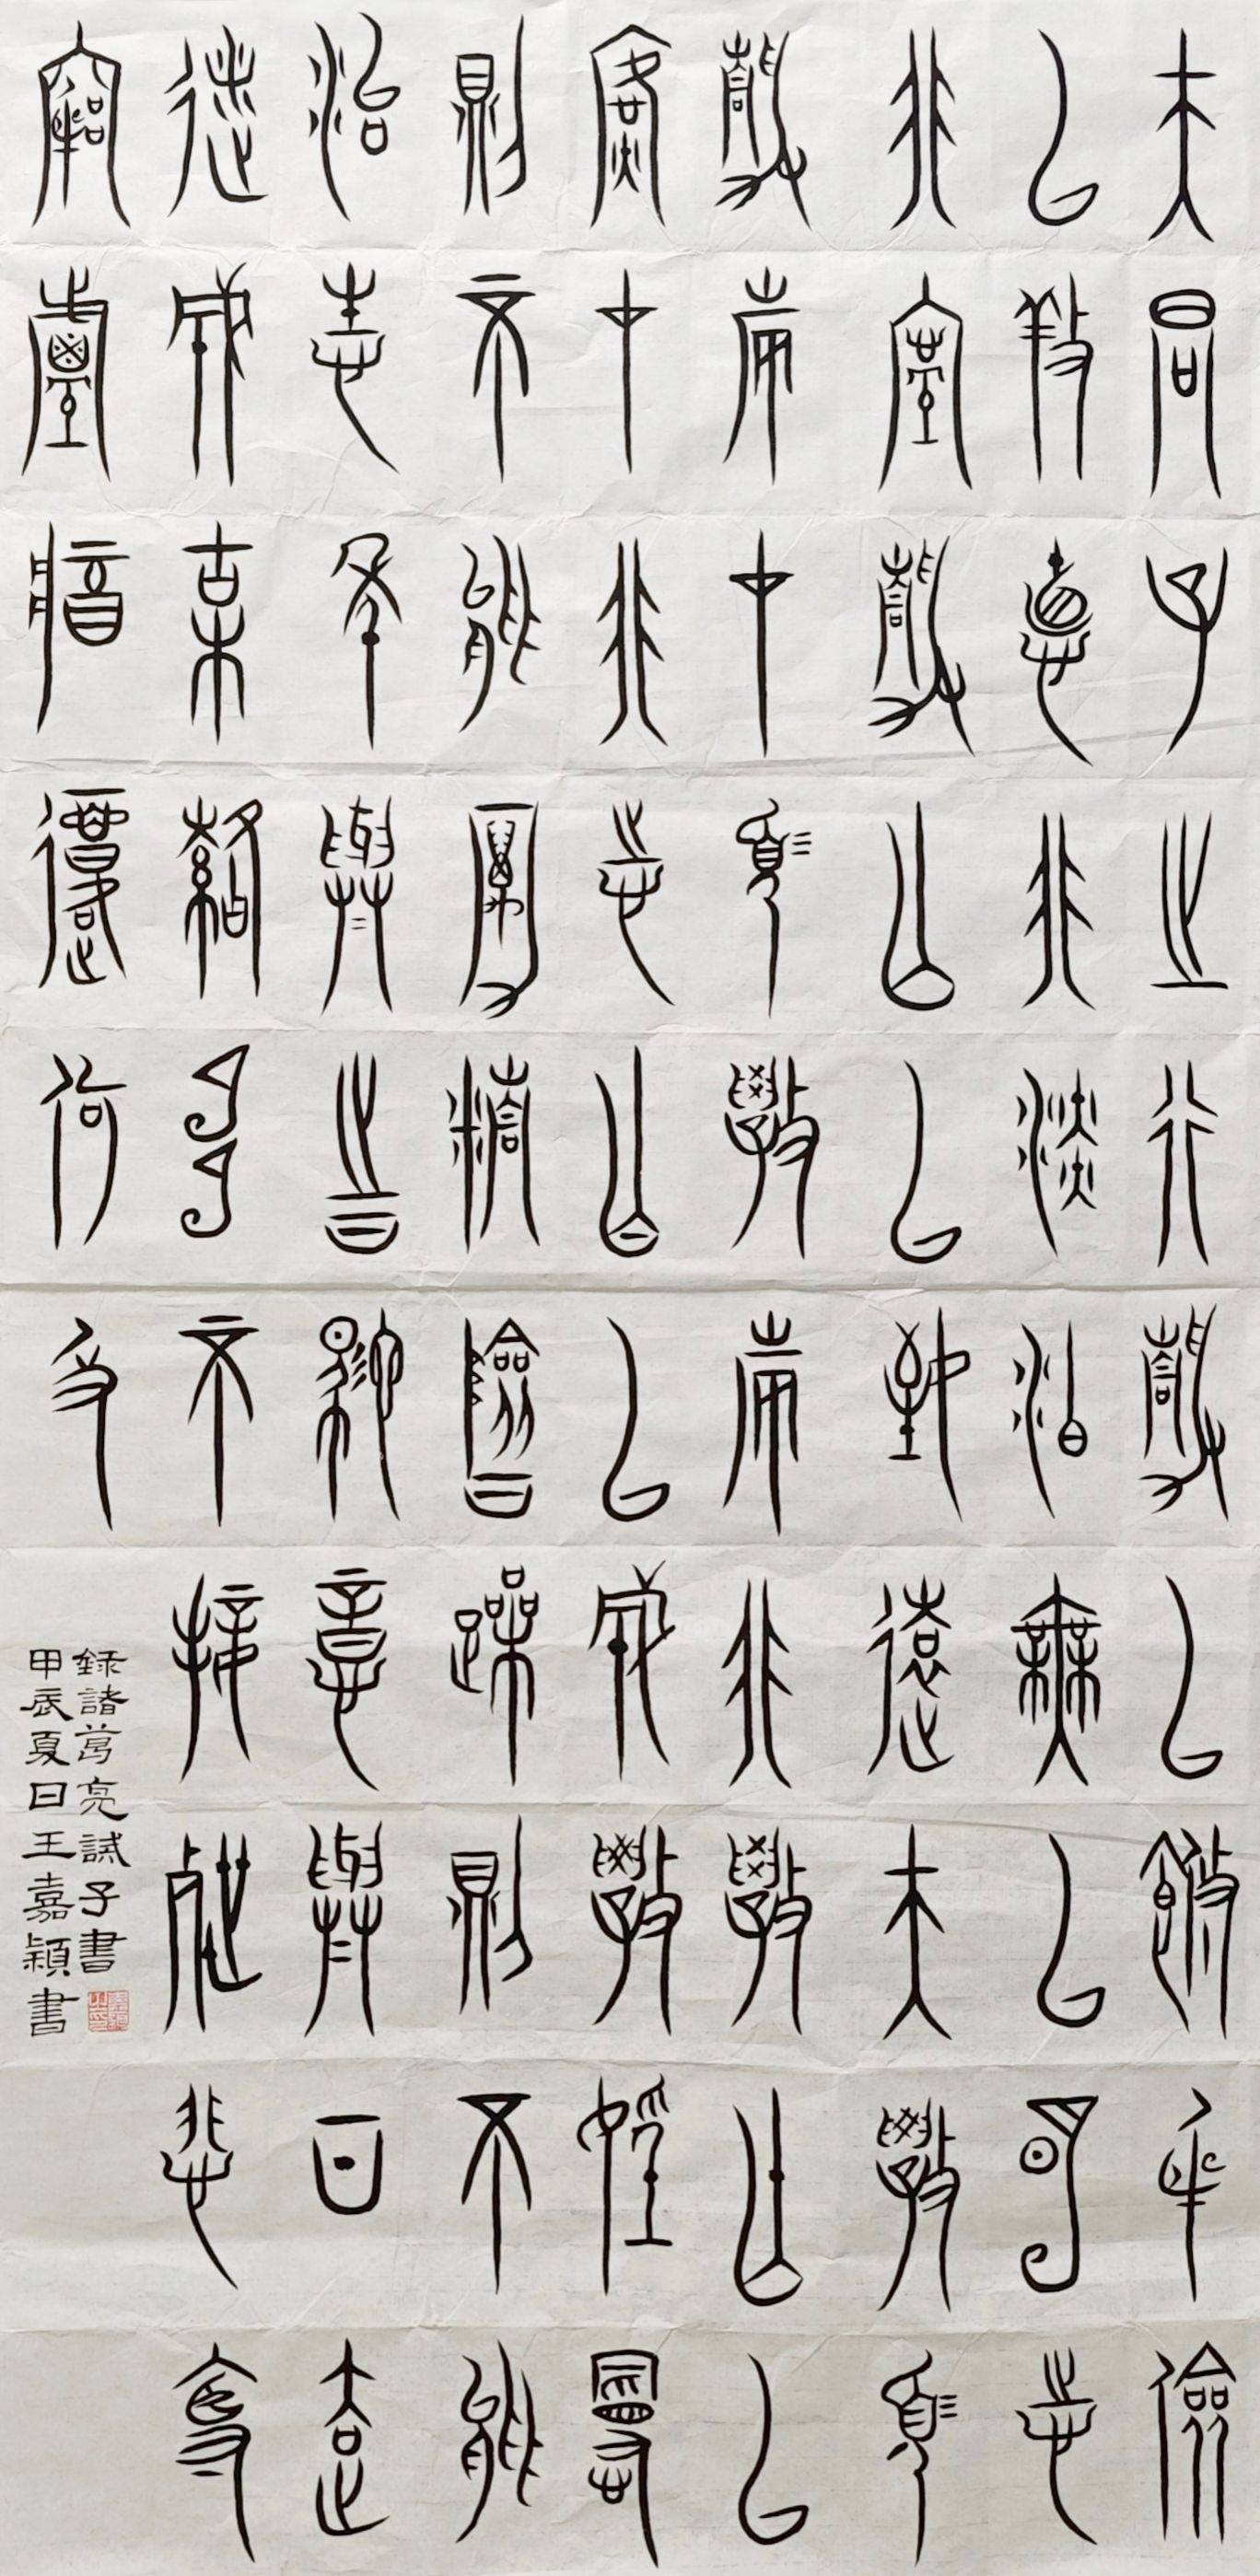 夫君子之行靜以修身儉
以養德非澹泊無以明志
非寧靜亡以致遠夫學須
靜也才須學也非學亡以
廣才非志亡以成學淫慢
則不能勵精險躁則不能
治性年與時馳意與日去
遂成枯落多不接世悲守
窮廬將復何及
錄諸葛亮誡子書
甲辰夏日王嘉穎書